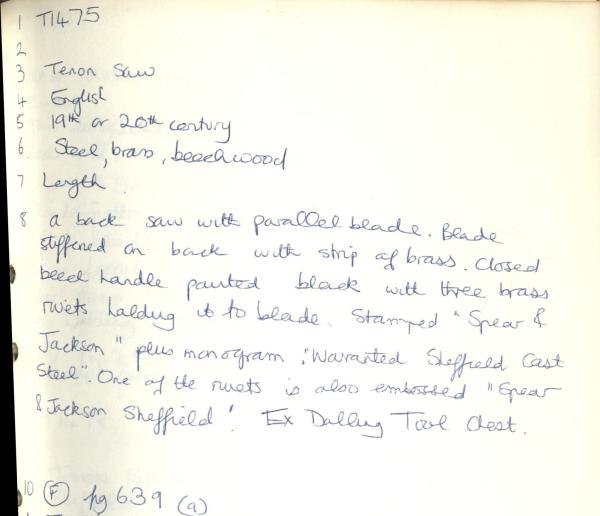 1 T1475
2
3 Tenon Saw
4 English
5 19th or 20th century
6 Steel, brass, beechwood
7 Length.
8 a back saw with parallel blade. Blade
stiffened on back with strip of brass. Closed
beech handle painted black with three brass
rivets holding it to blade. Stamped "Spear &
Jackson" plus monogram, "Warranted Sheffield Cast
Steel". One of the rivets is also embossed "Spear
& Jackson Sheffield". Ex Dalling Tool Chest.
10 (F) pg 639 (a)